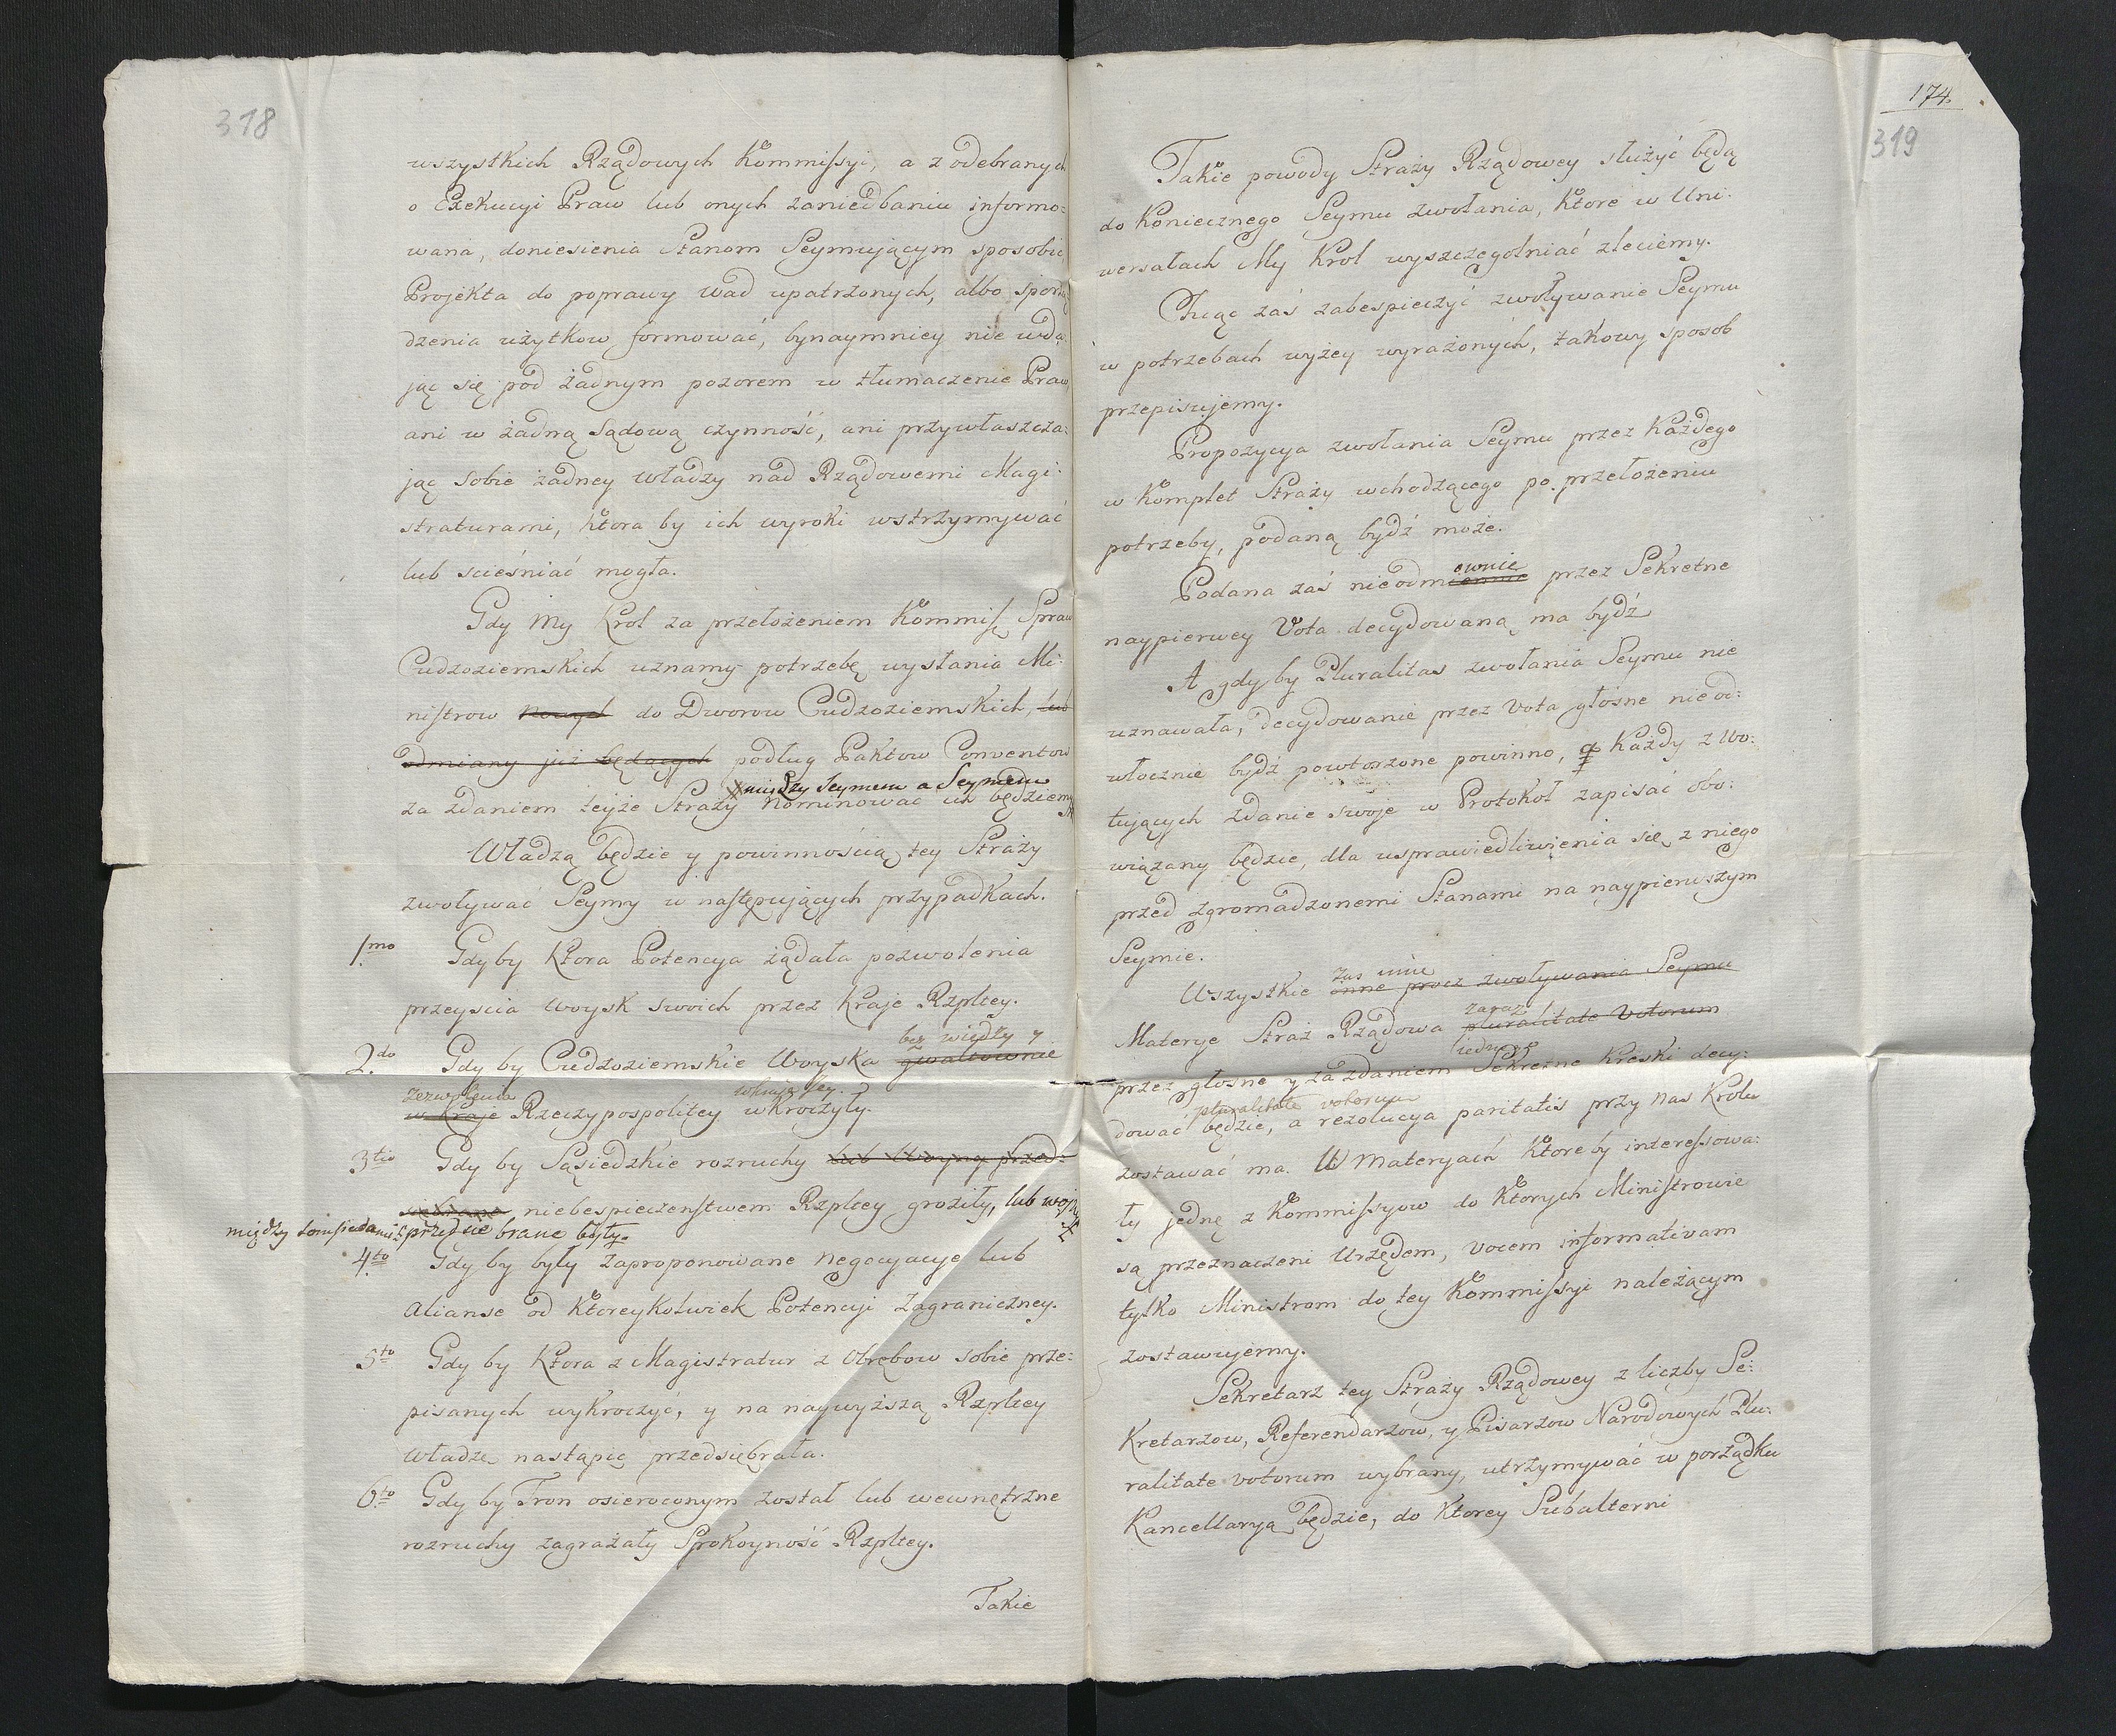 318
wszystkich Rządowych Kommissyi, a z odebranych
o Exekucyi Praw lub onych zaniedbaniu informo:
wana, doniesienia Stanom Seymującym sposobić
Projekta do poprawy wad upatrzonych, albo sporzą
dzenia użytkow formować, bynaymniey nie wda:
jąc się pod żadnym pozorem w tłumaczenie Praw
ani w żadną Sądową czynność, ani przywłaszcza:
jąc sobie żadney władzy nad Rządowemi Magi:
straturami, ktora by ich wyroki wstrzymywać
lub scieśniać mogła.
Gdy My Krol za przełożeniem Kommiss. Spraw
Cudzoziemskich uznamy potrzebę wysłania Mi:
nistrow nowych do Dworow Cudzoziemskich, lub
odmiany już będących podług Paktow Conventow
między Seymem a Seymem
za zdaniem teyże Straży nominować ich będziemy
Władzą będzie y powinnością tey Straży
zwoływać Seymy w następujących przypadkach.
1.mo Gdy by Ktora Potencya żądała pozwolenia
przeyscia Woysk swoich przez Kraje Rzpltey.
bez wiedzy y
2.do Gdy by Cudzoziemskie Woyska gwałtownie
zezwolenia
w Kraje Rzeczypospolitey wkroczyły.
3.tio Gdy by Sąsiedzkie rozruchy lub Woyny przed:
siebrane niebespieczenstwem Rzpltey groziły, lub woyny
między Somsiedami przedsie brane były.
4.to Gdy by były zaproponowane negocyacye lub
alianse od Ktoreykolwiek Potencyi Zagraniczney.
5.to Gdy by Ktora z Magistratur z obrębow sobie prze:
pisanych wykroczyć, y na naywyższą Rzpltey
Władze nastąpic przedsiębrała.
6.to Gdy by Tron osieroconym został lub wewnętrzne
rozruchy zagrażały Spokoyność Rzpltey.
Takie
174.
319
Takie powody Straży Rządowey służyć będą
do Koniecznego Seymu zwołania, Ktore w Uni:
wersałach My Krol wyszczegolniać zleciemy.
Chcąc zaś zabespieczyć zwoływanie Seymu
w potrzebach wyżey wyrażonych, takowy sposob
przepisujemy.
Propozycya zwołania Seymu przez Każdego
w Komplet Straży wchodzącego po przełożeniu
potrzeby, podaną bydź może.
ewnie
Podana zaś nieodmiennie przez Sekretne
naypierwey Vota decydowaną ma bydź
A gdy by Pluralitas zwołania Seymu nie
uznawała, decydowanie przez vota głosne nieod:
włocznie bydź powtorzone powinno, a Każdy z wo:
tujących zdanie swoje w Protokoł zapisać obo:
wiązany będzie, dla usprawiedliwienia się z niego
przed zgromadzonemi Stanami na naypierwszym
Seymie.
zas inne
Wszystkie inne procz zwoływania Seymu
zaraz
Materye Straż Rządowa pluralitate Votorum
przez głosne y za zdaniem Sekretne Kreski decy:
pluralitate votorum
dować będzie, a rezolucya paritatis przy nas Krolu
zostawać ma. W Materyach Ktore by interessowa:
ły jednę z Kommissyow do Ktorych Ministrowie
są przeznaczeni Urzędem, vocem informativam
tylko Ministrom do tey Kommissyi należącym
zostawujemy.
Sekretarz tey Straży Rządowey z liczby Se:
kretarzow, Referendarzow, y Pisarzow Narodowych Plu:
ralitate votorum wybrany, utrzymywać w porządku
Kancellaryą będzie, do Ktorey Subalterni